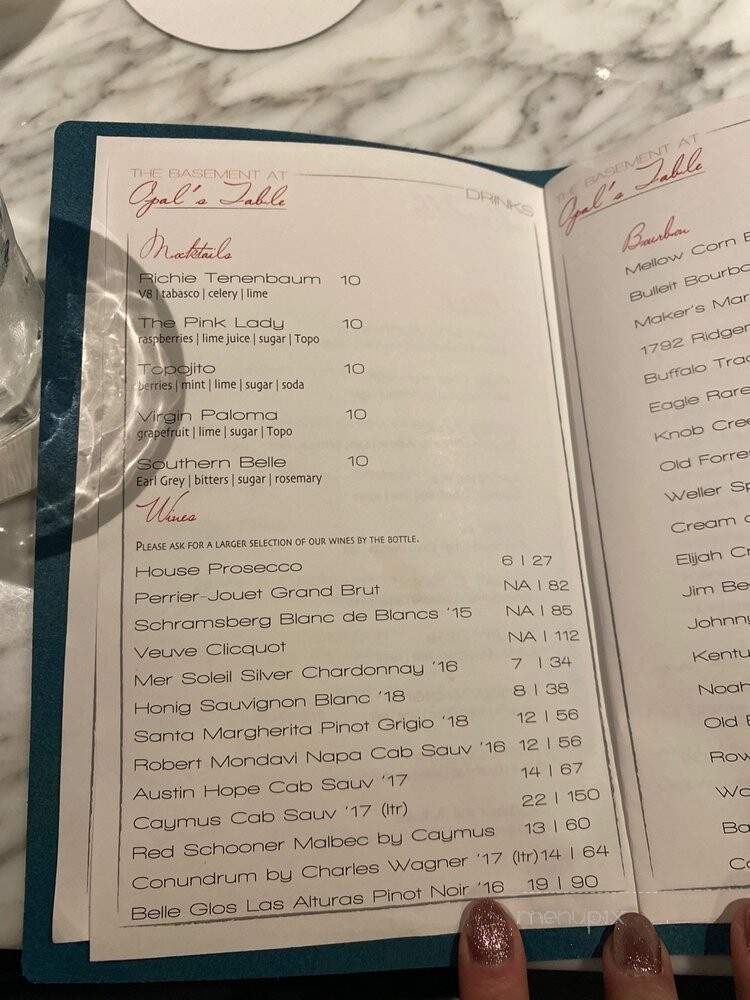 THE BASEMENT AT
Opal's Table
DRINKS
Mocktails
Richie Tenenbaum 10
V8 | tabasco | celery | lime
The Pink Lady 10
raspberries | lime juice | sugar | Topo
Topojito 10
berries | mint | lime | sugar | soda
Virgin Paloma 10
grapefruit | lime | sugar | Topo
Southern Belle 10
Earl Grey | bitters | sugar | rosemary
Wines
PLEASE ASK FOR A LARGER SELECTION OF OUR WINES BY THE BOTTLE.
House Prosecco 6 | 27
Perrier-Jouet Grand Brut NA | 82
Schramsberg Blanc de Blancs '15 NA | 85
Veuve Clicquot NA | 112
Mer Soleil Silver Chardonnay '16 7 | 34
Honig Sauvignon Blanc '18 8 | 38
Santa Margherita Pinot Grigio '18 12 | 56
Robert Mondavi Napa Cab Sauv '16 12 | 56
Austin Hope Cab Sauv '17 14 | 67
Caymus Cab Sauv '17 (ltr) 22 | 150
Red Schooner Malbec by Caymus 13 | 60
Conundrum by Charles Wagner '17 (ltr) 14 | 64
Belle Glos Las Alturas Pinot Noir '16 19 | 90
THE BASEMENT AT
Opal's Table
Bourbon
Mellow Corn
Bulleit
Maker's
1792
Buffalo
Eagle Rare
Knob
Old
Weller
Cream
Elijah
Jim
Noah
Old
menupix